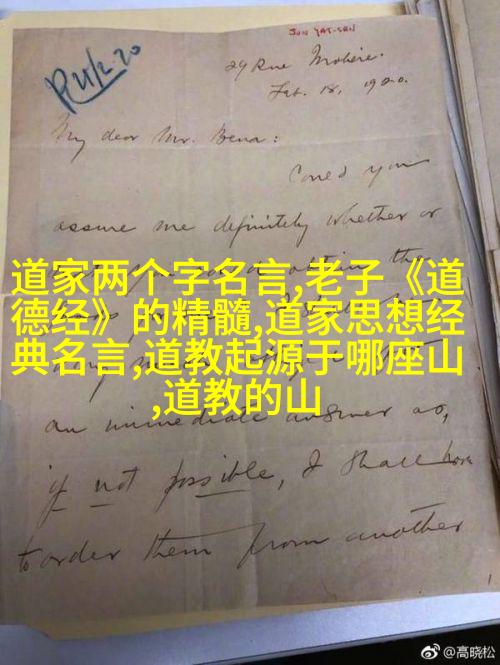 SUN YAT-SEN
R 21/2.20
29 Rue Molière.
Feb. 18, 1920.
My dear Mr. Bena:
Could you
assure me definitely whether or
道家两个字名言,老子《道
德经》的精髓,道家思想经
典名言,道教起源于哪座山
,道教的山
an immediate answer as,
if not possible, I shall have
to order them from another
@高晓松